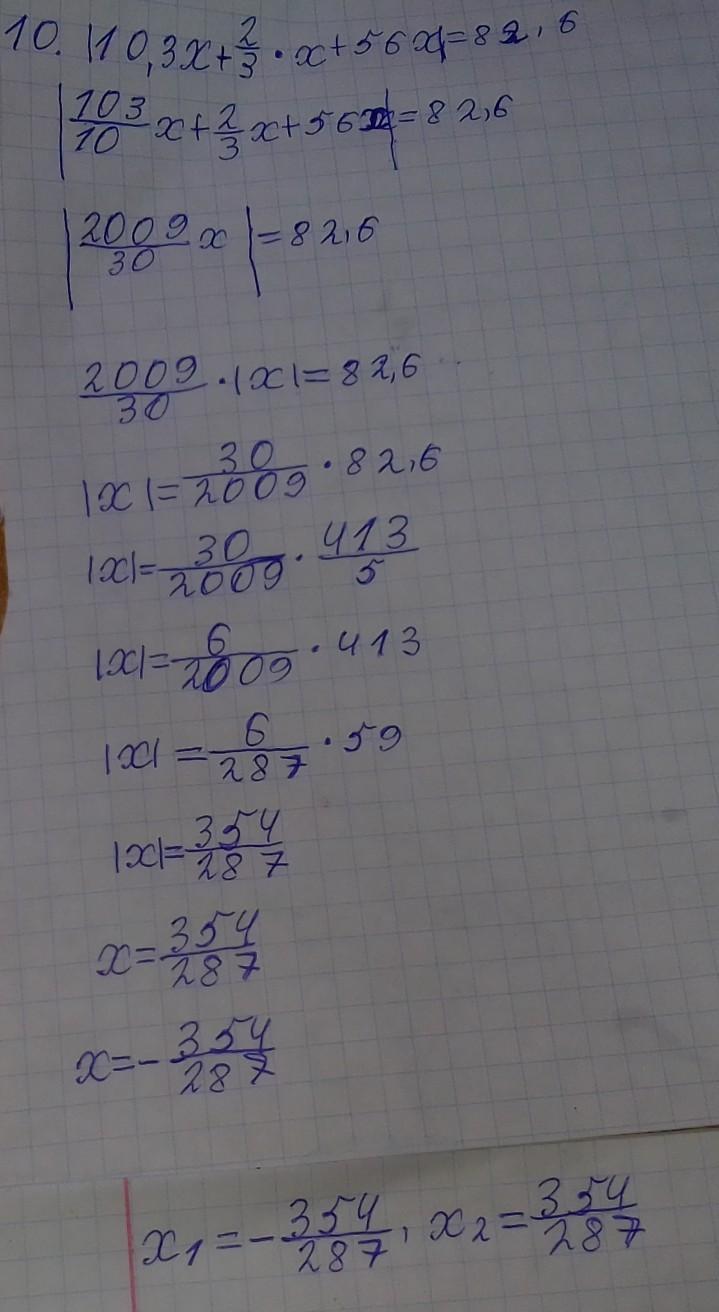 10. |10,3x+2/3·x+56x|=82,6
|103/10 x+2/3 x+56x|=82,6
|2009/30 x|=82,6
2009/30·|x|=82,6
|x|=30/2009·82,6
|x|=30/2009·413/5
|x|=6/2009·413
|x|=6/287·59
|x|=354/287
x=354/287
x=-354/287
x1=-354/287, x2=354/287